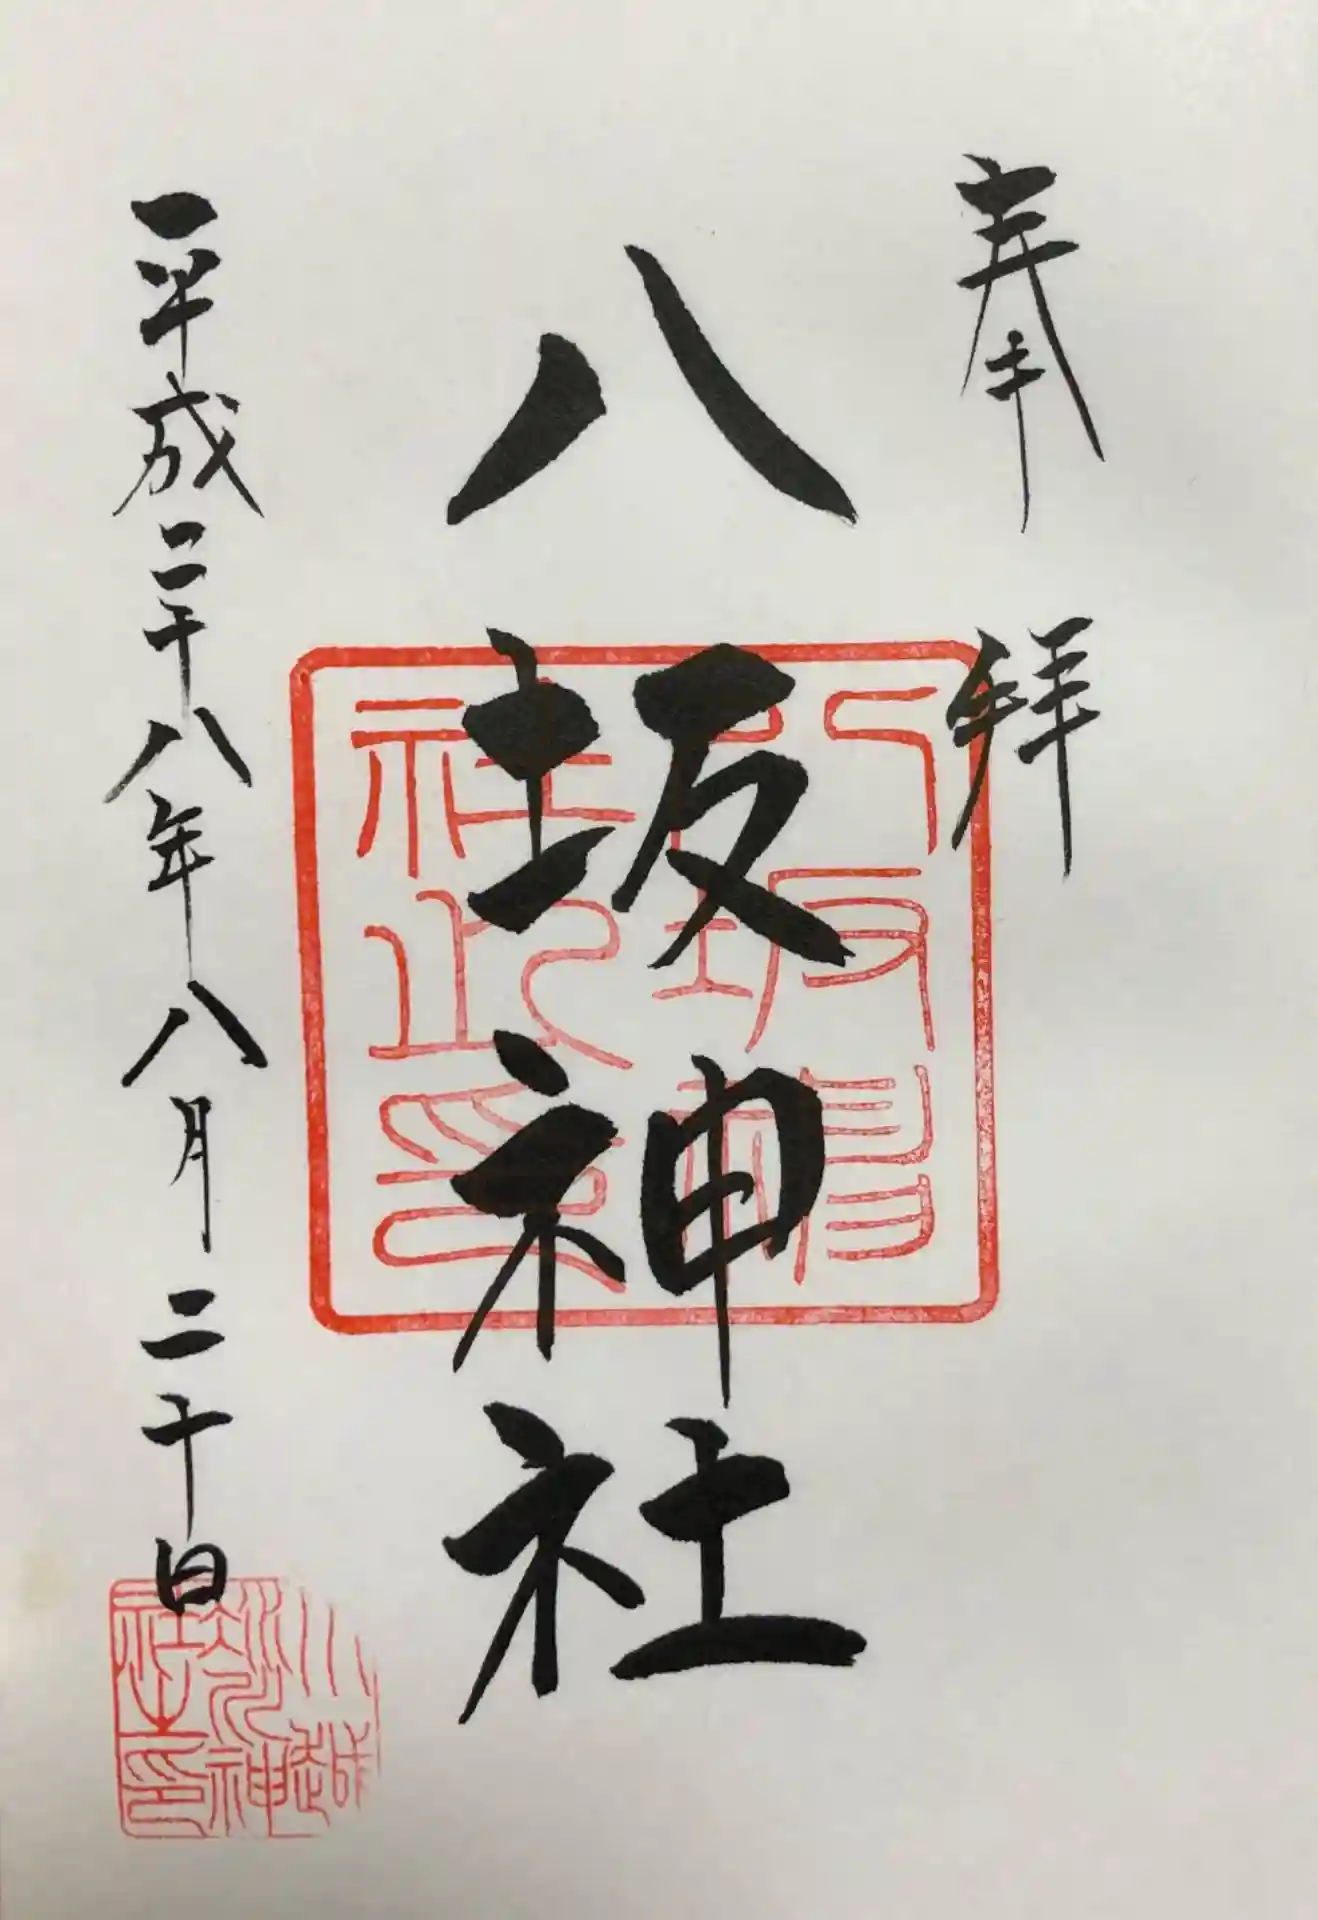 奉拝
八坂神社
八坂神
社之印
平成二十八年八月二十日
川越
氷川神
社之印